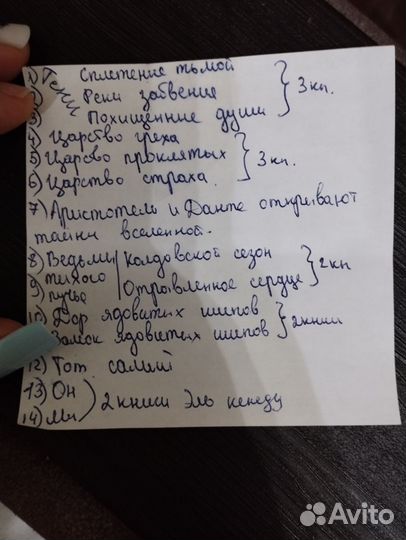 1) Тени Сплетение тьмой
2) Реки забвения } 3 кн.
3) Похищенние души
4) Царство греха
5) Царсво проклятых } 3 кн.
6) Царство страха.
7) Аристотель и Данте открывают
тайни вселенной.
8) Ведьмы Колдовской сезон
9) тихого ручья Отравленное сердце } 2 кн
10) Дар ядовитых шипов
Замок ядовитых шипов } 2 книги
12) Тот самий
13) Он
14) Мы } 2 книги Эль кенеди
Avito